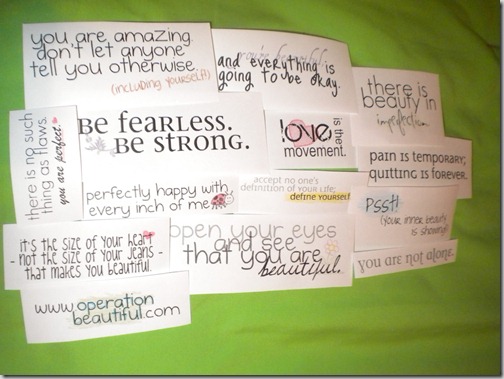 you are amazing.
don't let anyone
tell you otherwise.
(including yourself)
you're beautiful
and everything is
going to be okay.
there is
beauty in
imperfection.
there is no such
thing as flaws.
you are perfect.
Be fearless.
Be strong.
love is the
movement.
pain is temporary;
quitting is forever.
perfectly happy with
every inch of me
accept no one's
definition of your life;
define yourself.
Psst!
(your inner beauty
is showing)
it's the size of your heart
- not the size of your jeans -
that makes you beautiful.
open your eyes
and see
that you are
beautiful.
you are not alone.
www.operation
beautiful.com